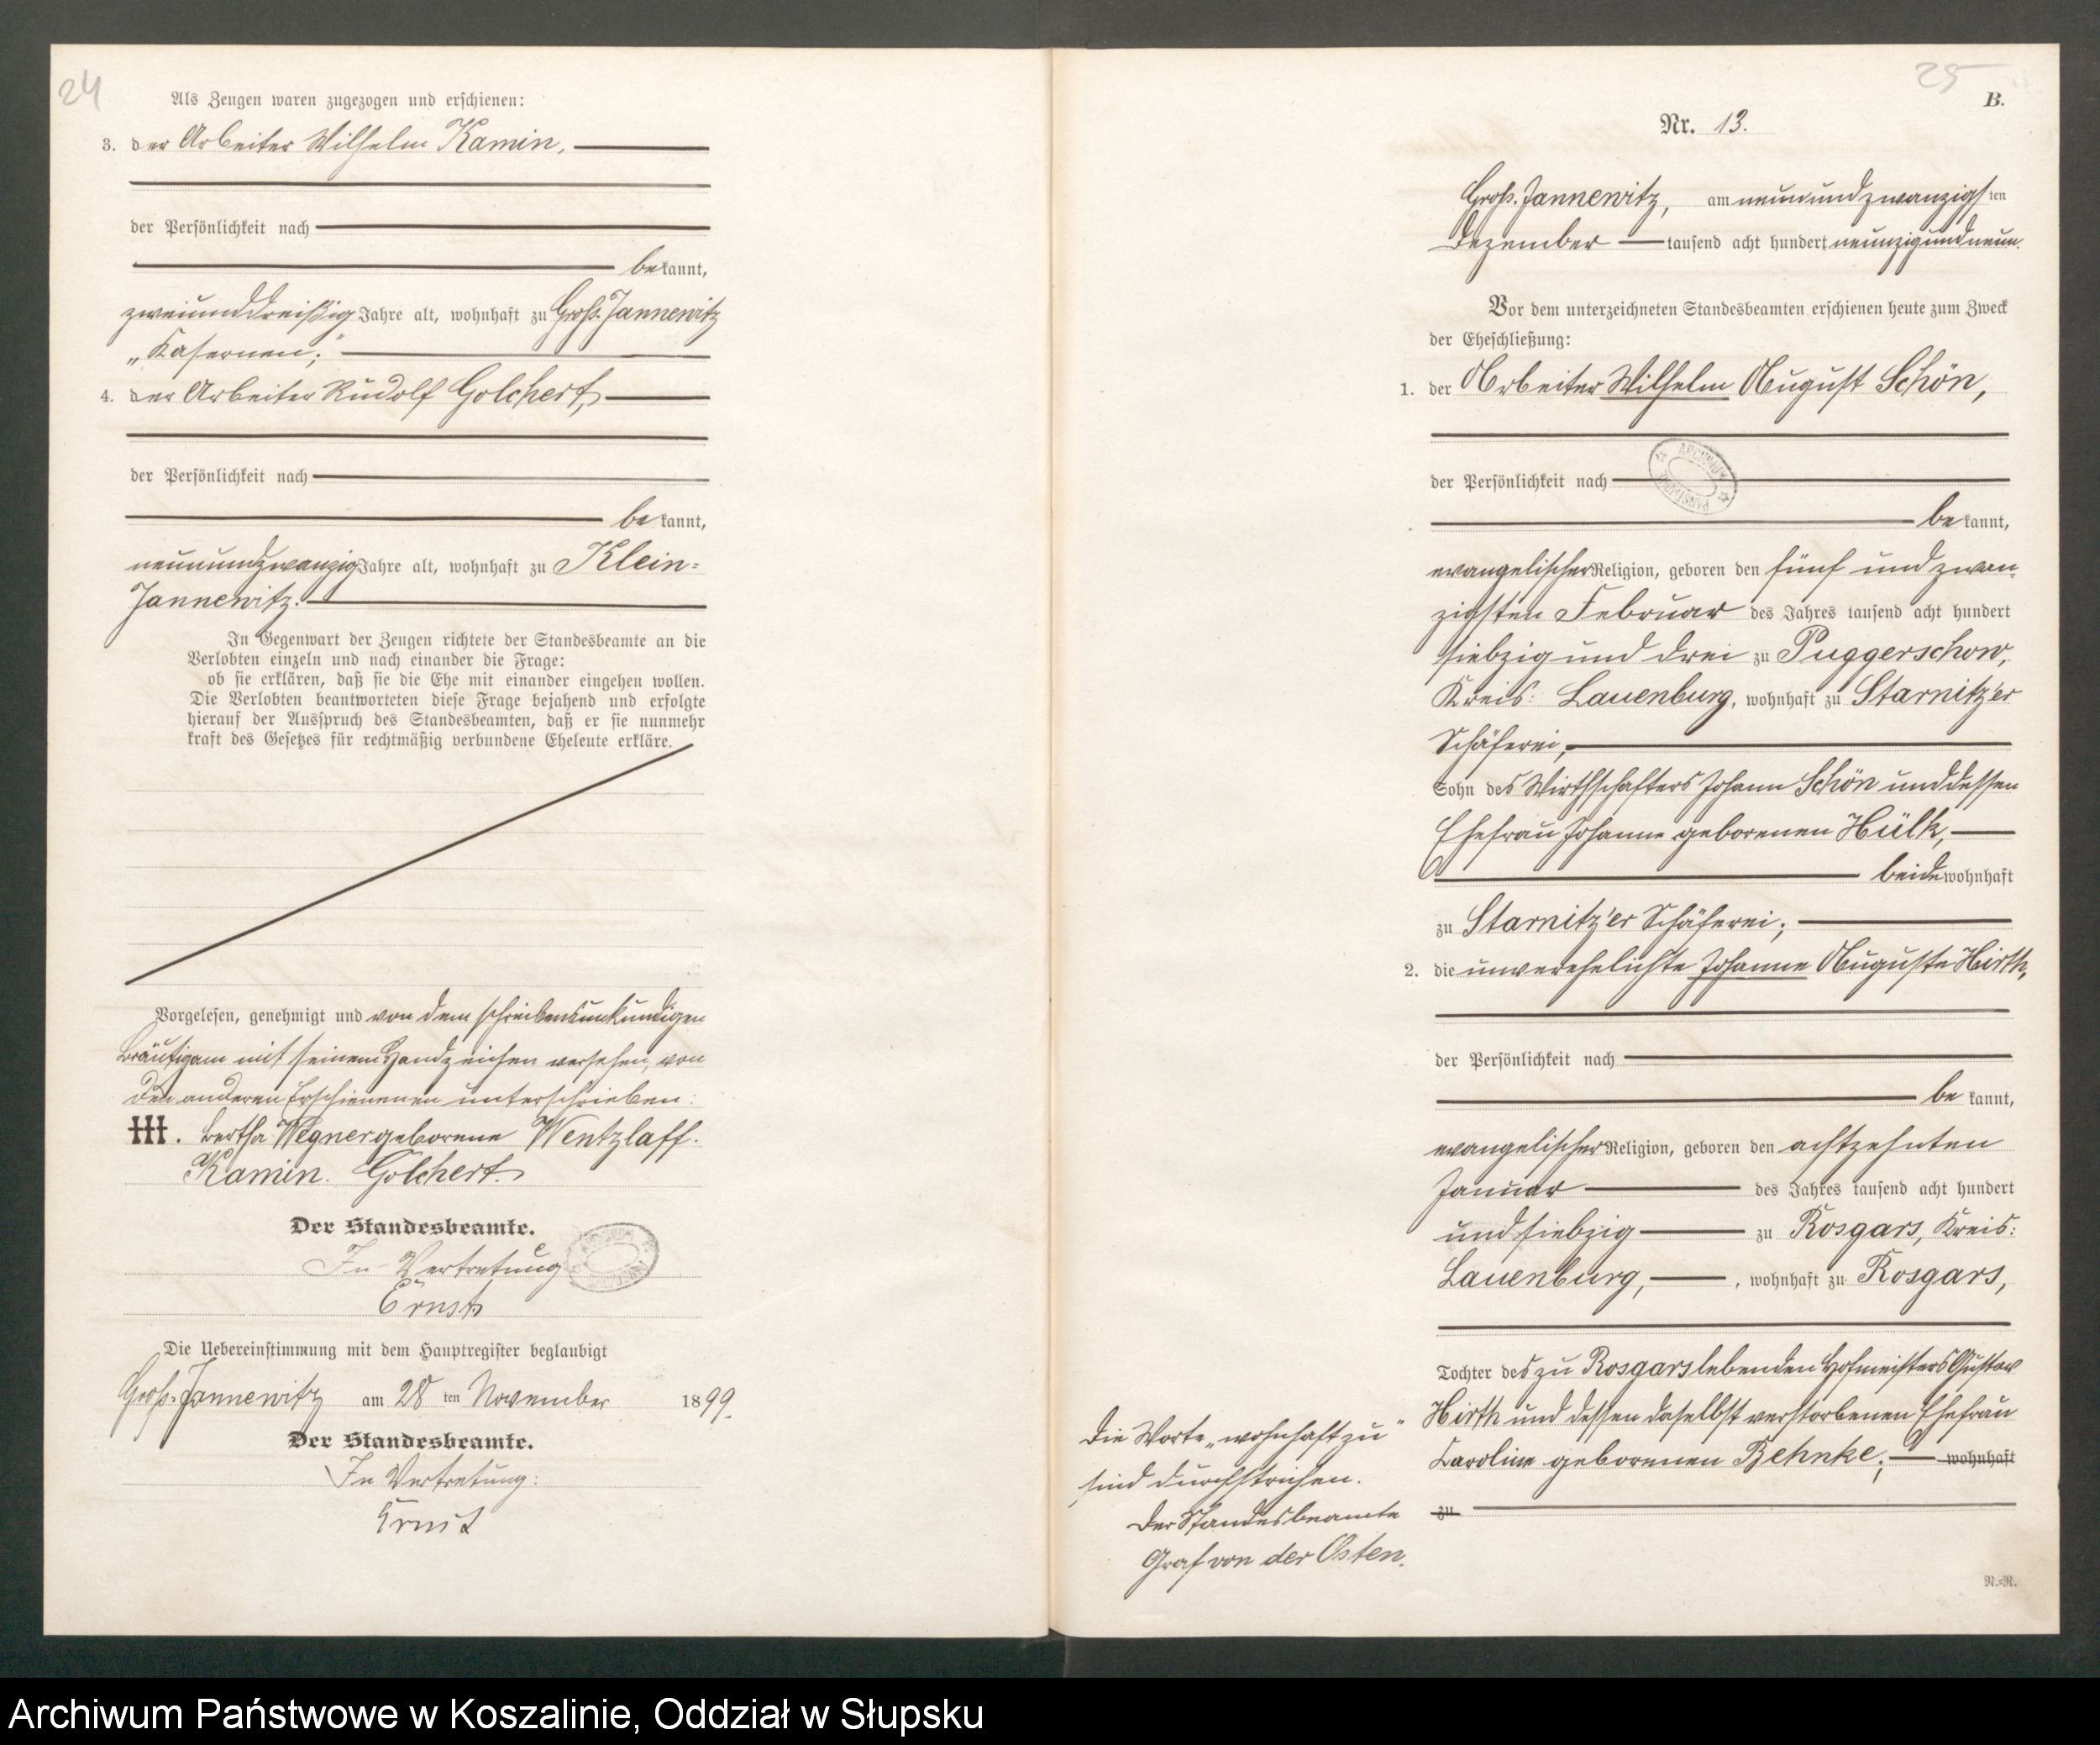 24
Als Zeugen waren zugezogen und erschienen:
3. der Arbeiter Wilhelm Kamin,
der Persönlichkeit nach
bekannt,
zweiunddreißig Jahre alt, wohnhaft zu Groß-Jannewitz
„Kasernen;"
4. der Arbeiter Rudolf Golchert,
der Persönlichkeit nach
bekannt,
neunundzwanzig Jahre alt, wohnhaft zu Klein-
Jannewitz.
In Gegenwart der Zeugen richtete der Standesbeamte an die
Verlobten einzeln und nach einander die Frage:
ob sie erklären, daß sie die Ehe mit einander eingehen wollen.
Die Verlobten beantworteten diese Frage bejahend und erfolgte
hierauf der Ausspruch des Standesbeamten, daß er sie nunmehr
kraft des Gesetzes für rechtmäßig verbundene Eheleute erkläre.
Vorgelesen, genehmigt und von dem schreibensunkundigen
Bräutigam mit seinem Handzeichen versehen, von
den anderen Erschienenen unterschrieben:
+++. Bertha Wegner geborene Wentzlaff.
Kamin. Golchert.
Der Standesbeamte.
In Vertretung
Ernst
Die Uebereinstimmung mit dem Hauptregister beglaubigt
Groß-Jannewitz am 28 ten November 1899.
Der Standesbeamte.
In Vertretung:
Ernst
25
B.
Nr. 13.
Groß-Jannewitz, am neunundzwanzigsten
Dezember tausend acht hundert neunzigundneun.
Vor dem unterzeichneten Standesbeamten erschienen heute zum Zweck
der Eheschließung:
1. der Arbeiter Wilhelm August Schön,
der Persönlichkeit nach
bekannt,
evangelischer Religion, geboren den fünf und zwan-
zigsten Februar des Jahres tausend acht hundert
siebzig und drei zu Puggerschow,
Kreis: Lauenburg, wohnhaft zu Starnitz'er
Schäferei,
Sohn des Wirthschafters Johann Schön und dessen
Ehefrau Johanne geborenen Hülk,
beide wohnhaft
zu Starnitz'er Schäferei;
2. die unverehelichte Johanne Auguste Hirth,
der Persönlichkeit nach
bekannt,
evangelischer Religion, geboren den achtzehnten
Januar des Jahres tausend acht hundert
und siebzig zu Rosgars, Kreis:
Lauenburg, , wohnhaft zu Rosgars,
Tochter des zu Rosgars lebenden Hofmeisters Gustav
Hirth und dessen daselbst verstorbenen Ehefrau
Caroline geborenen Behnke; wohnhaft
zu
Die Worte „wohnhaft zu"
sind durchstrichen.
Der Standesbeamte
Graf von der Osten.
R.=R.
Archiwum Państwowe w Koszalinie, Oddział w Słupsku